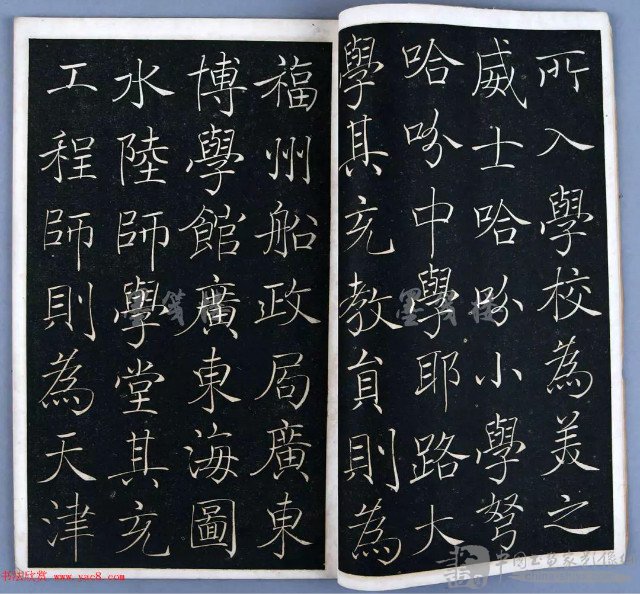 所入學校為美之
威士哈吩小學弩
哈吩中學耶路大
學其充教員則為
福州船政局廣東
博學館廣東海圖
水陸師學堂其充
工程師則為天津
墨箋樓
墨箋樓
书法欣赏 www.yac8.com